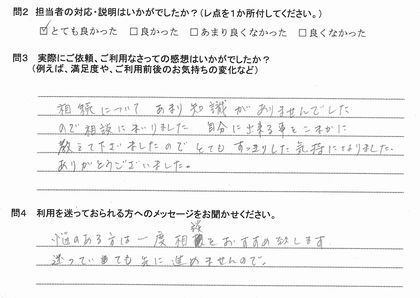 問2 担当者の対応・説明はいかがでしたか?(レ点を1か所付してください。)
☑とても良かった □良かった □あまり良くなかった □良くなかった
問3 実際にご依頼、ご利用なさっての感想はいかがでしたか?
(例えば、満足度や、ご利用前後のお気持ちの変化など)
相続について あまり知識がありませんでした
ので相談にまいりました 自分に出来る事を
教えて下さいましたので とてもすっきりした気持になりました。
ありがとうございました。
問4 利用を迷っておられる方へのメッセージをお聞かせください。
悩のある方は一度相談をおすすめ致します
迷っていても先に進めませんので。